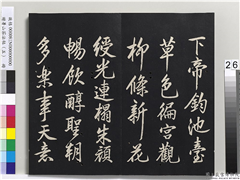 下帝鈞池臺
草色編宮觀
柳條新花
綬光連榻朱顏
暢飲醇聖朝
多樂事天意
26